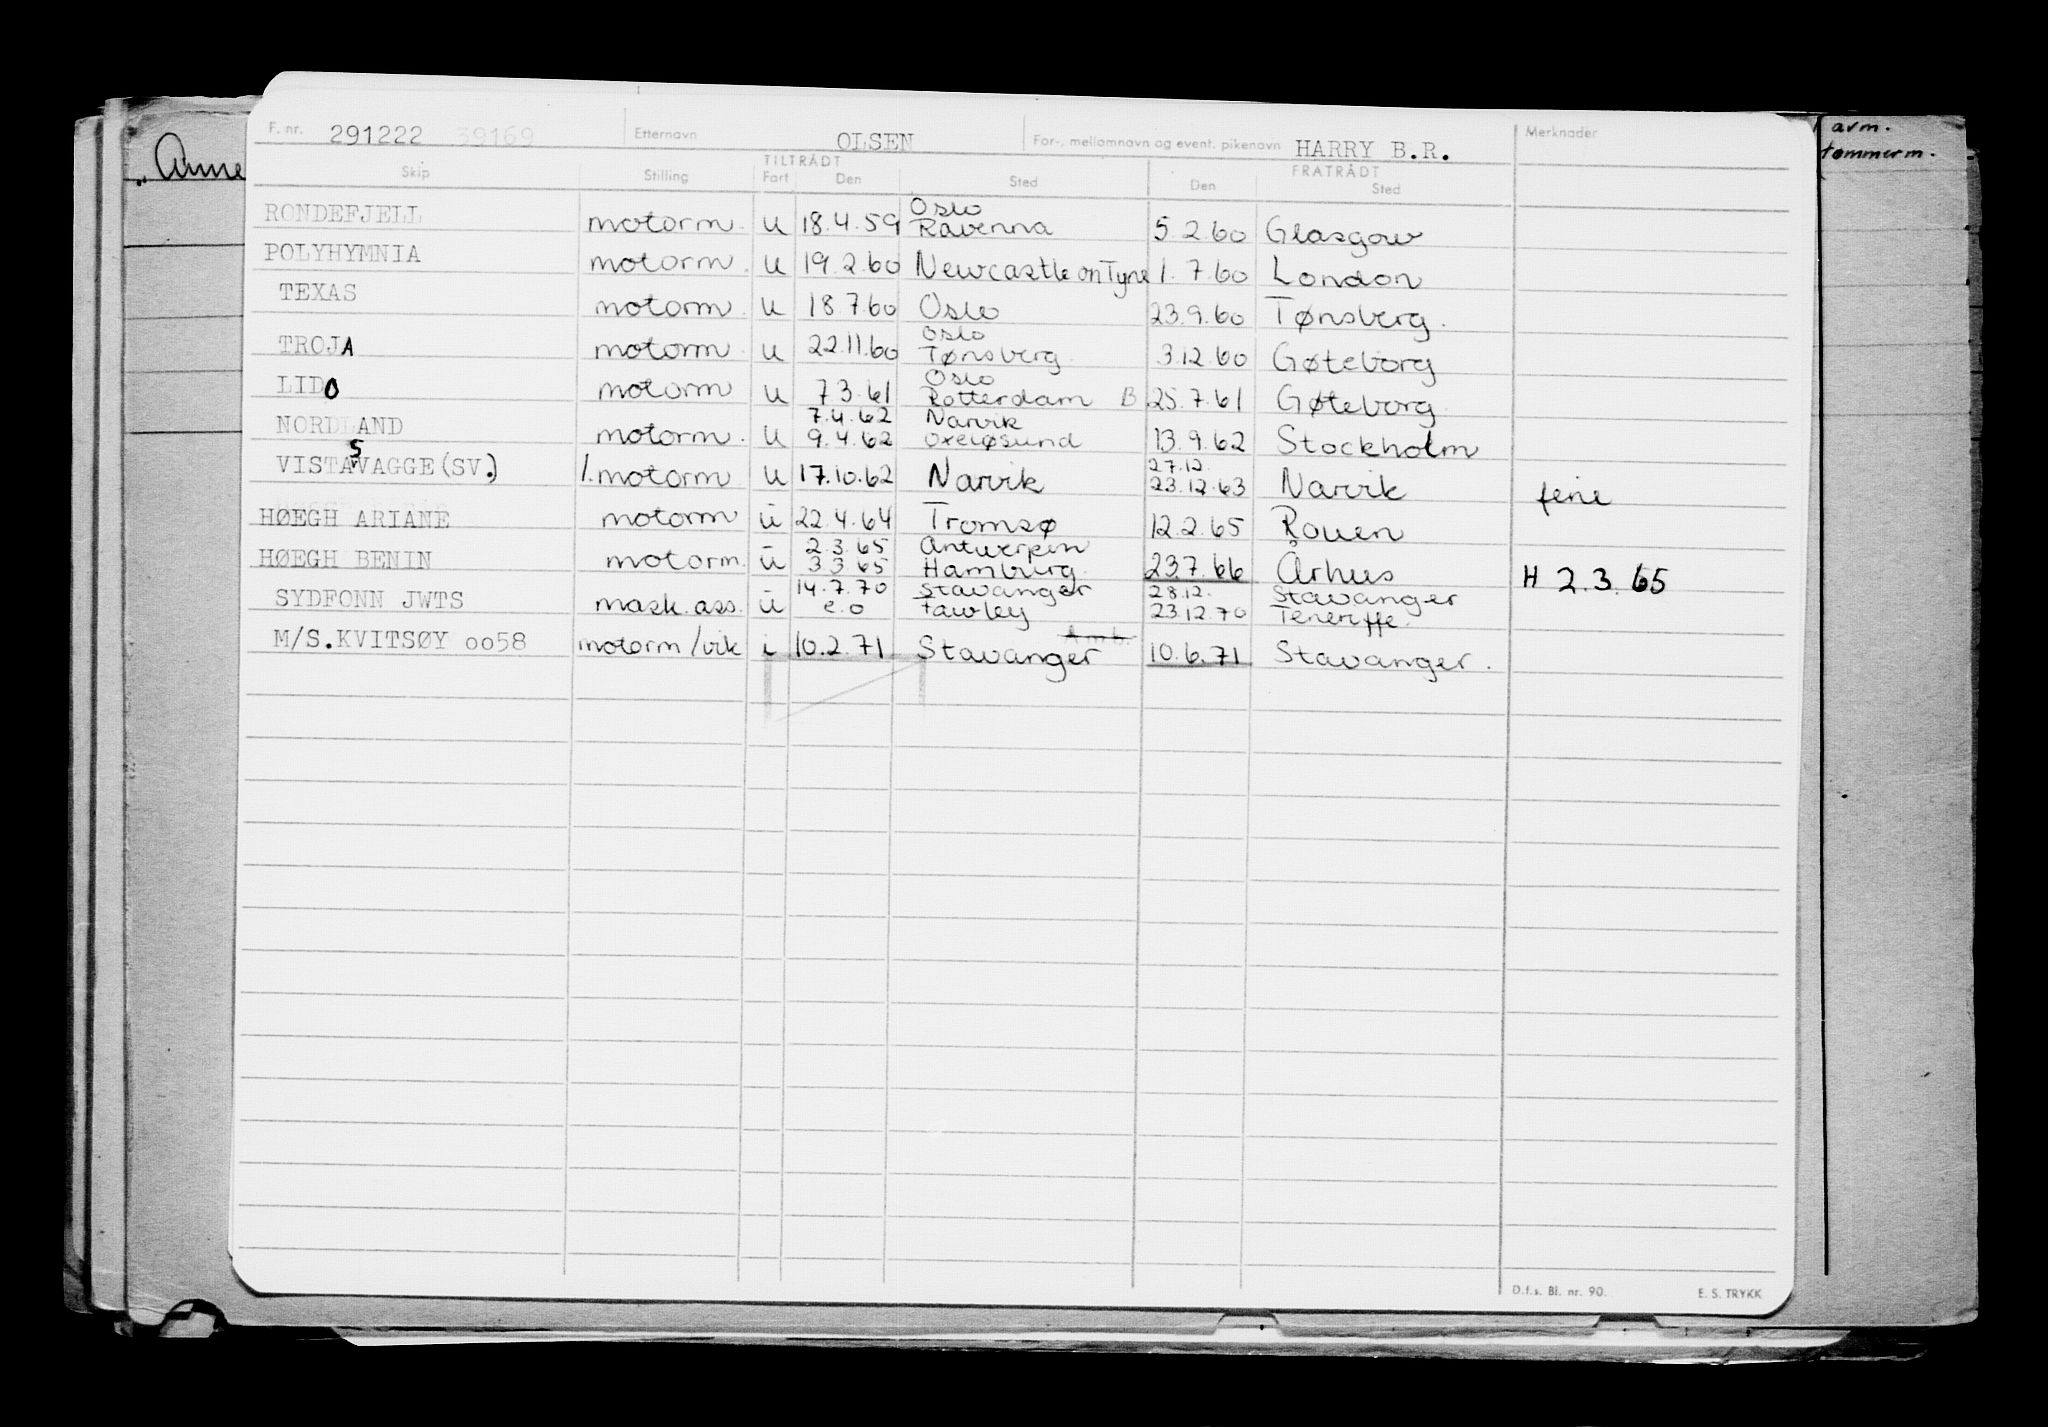 F. nr. 291222 39169 Etternavn OLSEN For-, mellomnavn og event. pikenavn HARRY B.R. Merknader
Skip Stilling TILTRÅDT Fart Den Sted FRATRÅDT Den Sted
RONDEFJELL motorm. u 18.4.59 Oslo Ravenna 5.2.60 Glasgow
POLYHYMNIA motorm. u 19.2.60 Newcastle on Tyne 1.7.60 London
TEXAS motorm. u 18.7.60 Oslo 23.9.60 Tønsberg.
TROJA motorm. u 22.11.60 Oslo Tønsberg. 3.12.60 Gøteborg
LIDO motorm u 7.3.61 Oslo Rotterdam B 25.7.61 Gøteborg
NORDLAND motorm. u 7.4.62 9.4.62 Narvik Oxeløsund 13.9.62 Stockholm
VISTASVAGGE (SV.) 1. motorm u 17.10.62 Narvik 27.12. 23.12.63 Narvik ferie
HØEGH ARIANE motorm ū 22.4.64 Tromsø 12.2.65 Rouen
HØEGH BENIN motorm. ū 2.3.65 3.3.65 Antwerpen Hamburg. 23.7.66 Århus H 2.3.65
SYDFONN JWTS mask. ass. ū 14.7.70 e.o Stavanger Fawley 28.12. 23.12.70 Stavanger Teneriffe.
M/S.KVITSØY oo58 motorm/vik i 10.2.71 Amb. Stavanger 10.6.71 Stavanger.
D.f.s. Bl. nr. 90. E. S. TRYKK
"Anne
arm.
tømmerm.